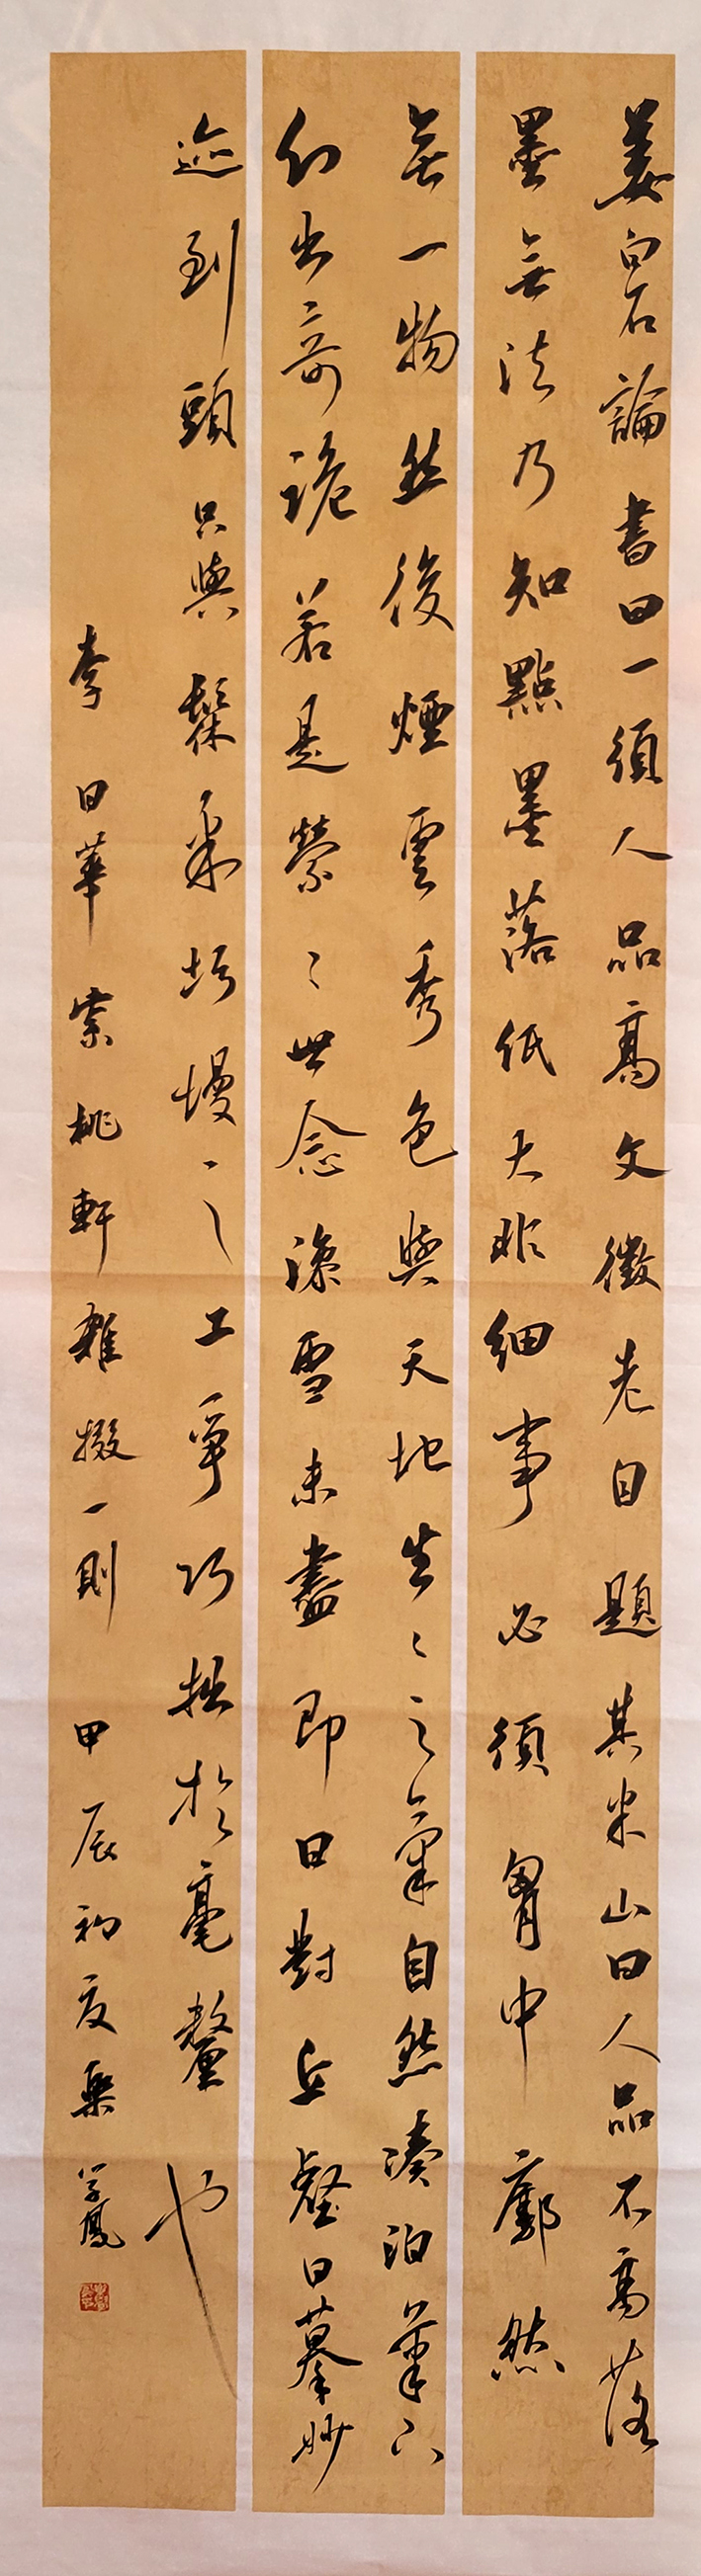 姜白石論書曰一須人品高文徵老自題其米山曰人品不高落
墨無法乃知點墨落紙大非細事必須胷中廓然
無一物然後煙雲秀色與天地生〻之氣自然湊泊筆下
幻出奇詭若是營〻世念澡雪未盡即日對丘壑日摹妙
迹到頭只與髹采圬墁之工爭巧拙於毫釐也
李日華紫桃軒雜掇一則 甲辰初夏 學鳳